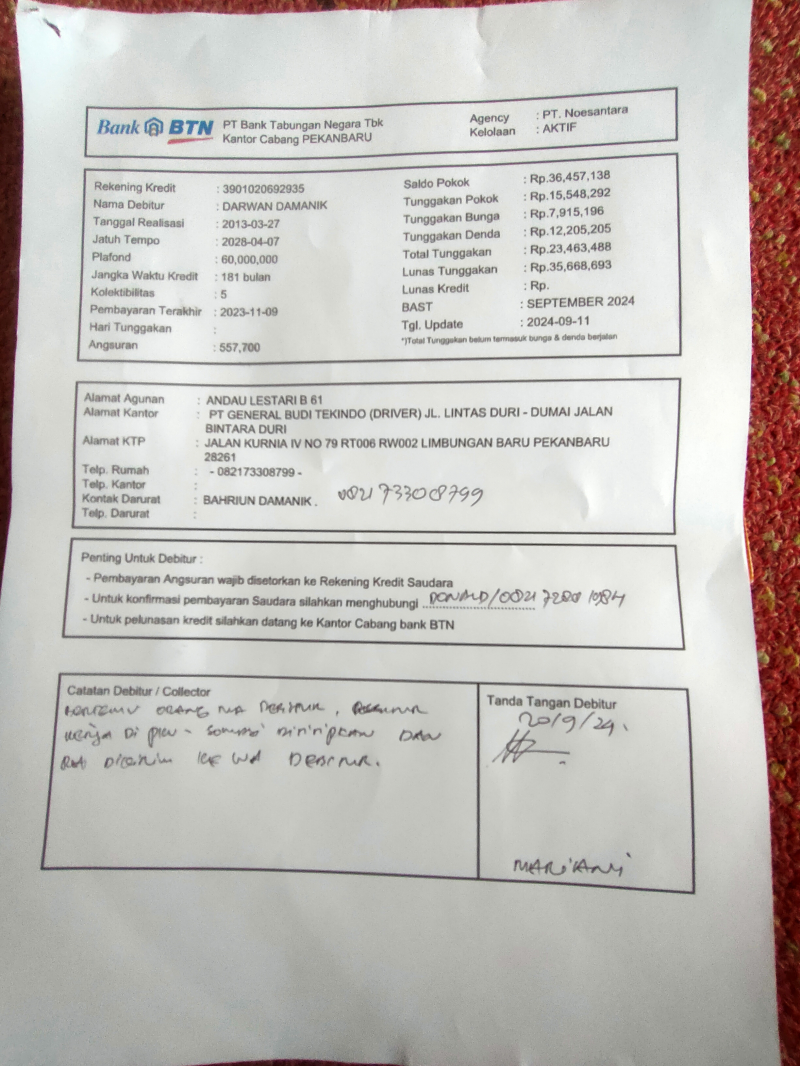 Bank BTN
PT Bank Tabungan Negara Tbk
Kantor Cabang PEKANBARU
Agency : PT. Noesantara
Kelolaan : AKTIF
Rekening Kredit : 3901020692935
Nama Debitur : DARWAN DAMANIK
Tanggal Realisasi : 2013-03-27
Jatuh Tempo : 2028-04-07
Plafond : 60,000,000
Jangka Waktu Kredit : 181 bulan
Kolektibilitas : 5
Pembayaran Terakhir : 2023-11-09
Hari Tunggakan :
Angsuran : 557,700
Saldo Pokok : Rp.36,457,138
Tunggakan Pokok : Rp.15,548,292
Tunggakan Bunga : Rp.7,915,196
Tunggakan Denda : Rp.12,205,205
Total Tunggakan : Rp.23,463,488
Lunas Tunggakan : Rp.35,668,693
Lunas Kredit : Rp.
BAST : SEPTEMBER 2024
Tgl. Update : 2024-09-11
*)Total Tunggakan belum termasuk bunga & denda berjalan
Alamat Agunan : ANDAU LESTARI B 61
Alamat Kantor : PT GENERAL BUDI TEKINDO (DRIVER) JL. LINTAS DURI - DUMAI JALAN
BINTARA DURI
Alamat KTP : JALAN KURNIA IV NO 79 RT006 RW002 LIMBUNGAN BARU PEKANBARU
28261
Telp. Rumah : - 082173308799 -
Telp. Kantor :
Kontak Darurat : BAHRIUN DAMANIK . 082173308799
Telp. Darurat :
Penting Untuk Debitur :
- Pembayaran Angsuran wajib disetorkan ke Rekening Kredit Saudara
- Untuk konfirmasi pembayaran Saudara silahkan menghubungi DONALD/0821
- Untuk pelunasan kredit silahkan datang ke Kantor Cabang bank BTN
Catatan Debitur / Collector
BERTEMU ORANG DEBITUR,
KERJA DI DAN
KE WA DEBITUR.
Tanda Tangan Debitur
20/9/24.
MARIANI